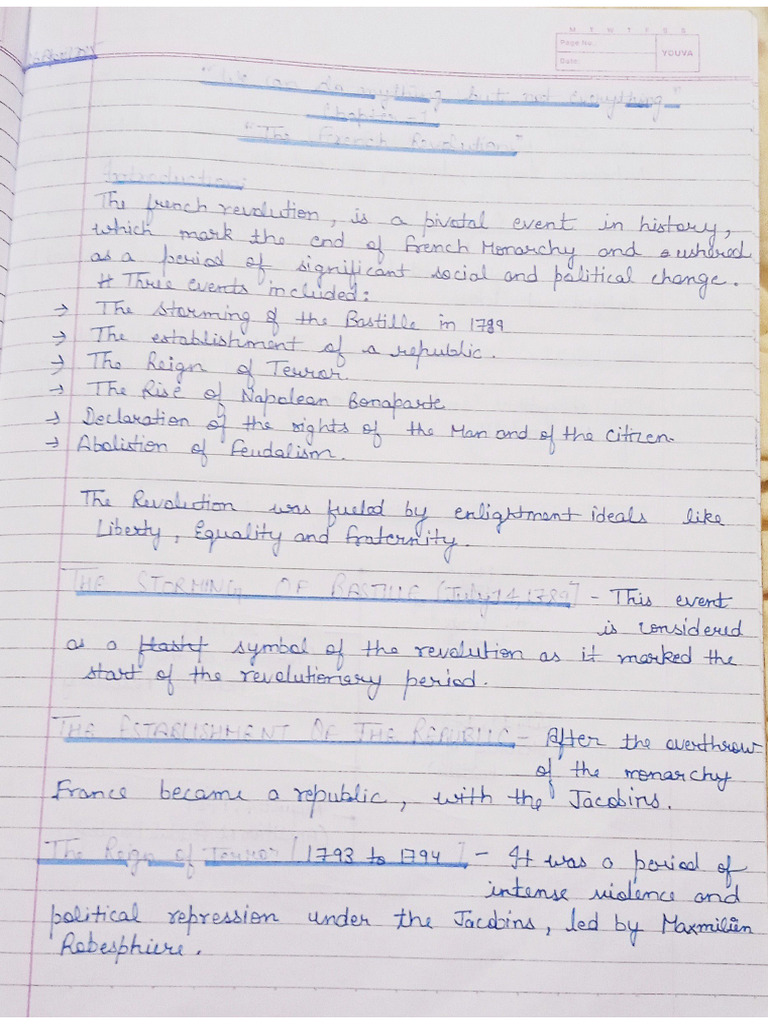 M T W T F S S
Page No.:
YOUVA
Date:
"We can do anything but not everything"
Chapter-1
"The French Revolution"
Introduction:
The french revolution, is a pivotal event in history,
which mark the end of French Monarchy and ushered
as a period of significant social and political change.
# Three events included:
→ The storming of the Bastille in 1789
→ The establishment of a republic.
→ The Reign of Terror.
→ The Rise of Napolean Bonaparte
→ Declaration of the rights of the Man and of the Citizen.
→ Abolistion of Feudalism.
The Revolution was fueled by enlightment ideals like
Liberty, Equality and fraternity.
THE STORMING OF BASTILLE [July 14, 1789] - This event
is considered
as a symbol of the revolution as it marked the
start of the revolutionary period.
THE ESTABLISHMENT OF THE REPUBLIC - After the overthrow
of the monarchy
France became a republic, with the Jacobins.
The Reign of Terror [1793 to 1794] - It was a period of
intense violence and
political repression under the Jacobins, led by Maxmilien
Robesphiere.